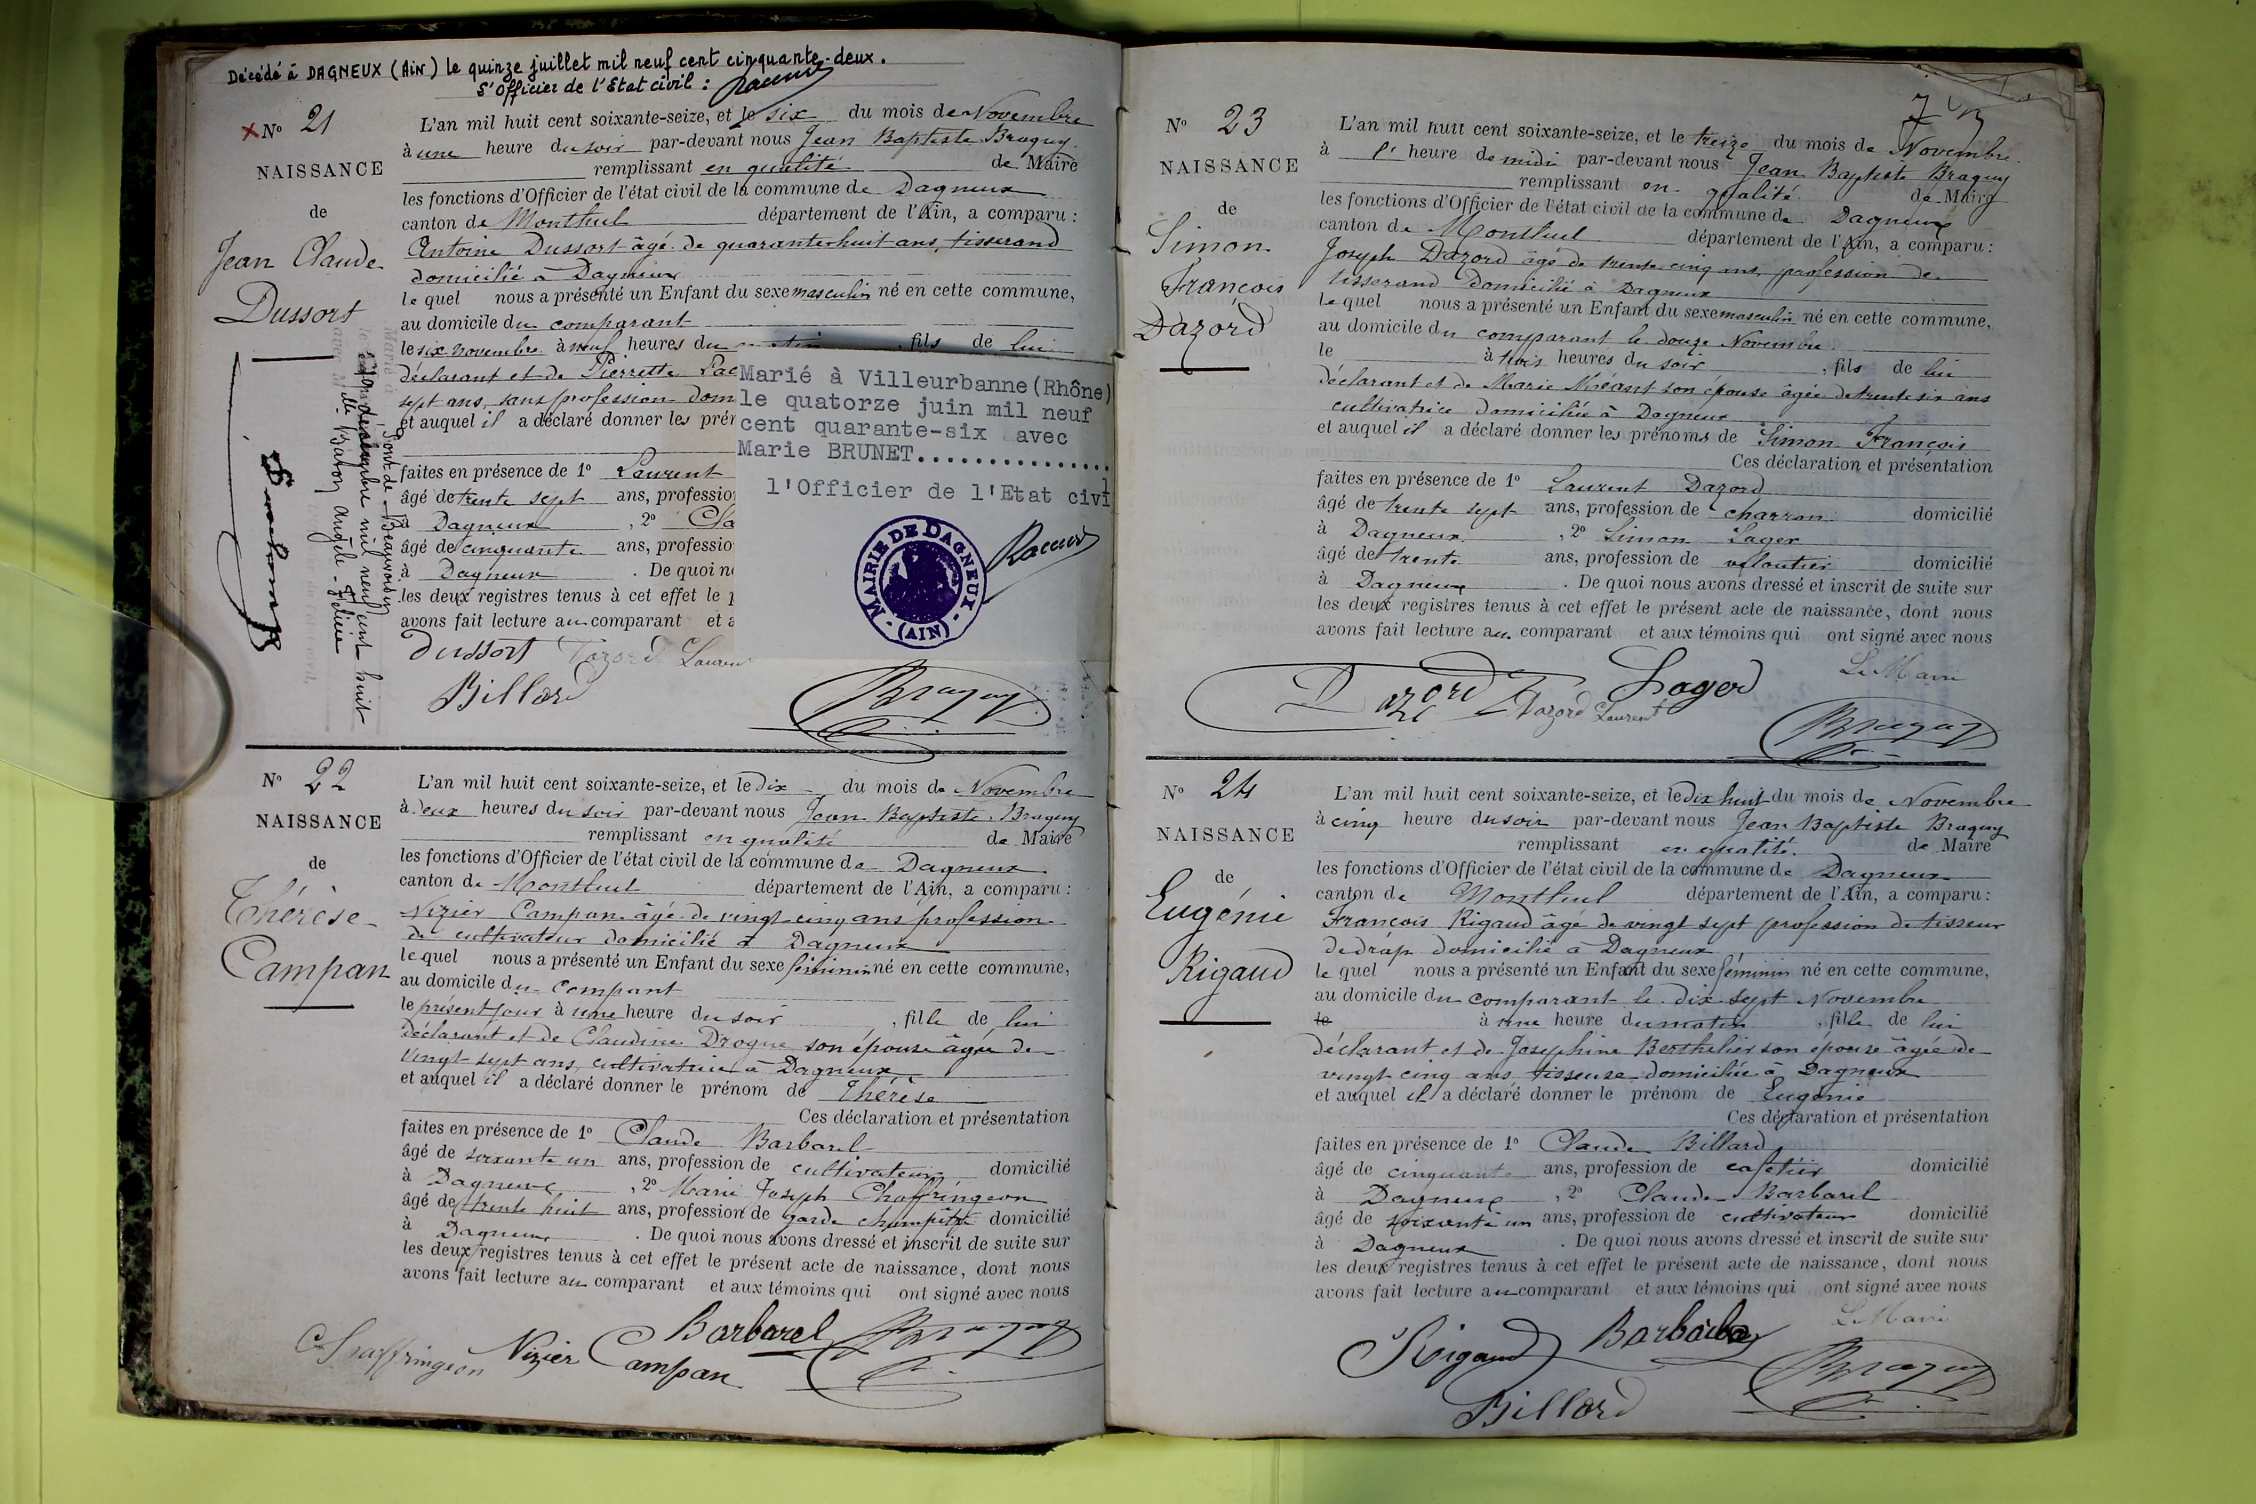 Décédé à DAGNEUX (Ain) le quinze juillet mil neuf cent cinquante-deux.
L'Officier de l'Etat civil :
N° 21
NAISSANCE
de
Jean Claude
Dussort
L'an mil huit cent soixante-seize, et le six du mois de Novembre
à une heure du soir par-devant nous Jean Baptiste Braguy
remplissant en qualité de Maire
les fonctions d'Officier de l'état civil de la commune de Dagneux
canton de Montluel département de l'Ain, a comparu :
Antoine Dussort âgé de quarante huit ans, tisserand
domicilié à Dagneux
lequel nous a présenté un Enfant du sexe masculin né en cette commune,
au domicile du comparant
le six novembre à neuf heures du matin, fils de lui
déclarant et de Pierrette
sept ans, sans profession dom
et auquel il a déclaré donner les prén
faites en présence de 1° Laurent
âgé de trente sept ans, profession
à Dagneux, 2° Cla
âgé de cinquante ans, profession
à Dagneux. De quoi no
les deux registres tenus à cet effet le p
avons fait lecture au comparant et a
Dussort Dazord Laurent
Billard
Braguy
Marié à Villeurbanne(Rhône)
le quatorze juin mil neuf
cent quarante-six avec
Marie BRUNET................
l'Officier de l'Etat civil
MAIRIE DE DAGNEUX
-(AIN)-
Pont-de-Beauvoisin
décembre mil neuf cent huit
Mlle Baton Angèle-Félicie
N° 22
NAISSANCE
de
Thérèse
Campan
L'an mil huit cent soixante-seize, et le dix du mois de Novembre
à deux heures du soir par-devant nous Jean Baptiste Braguy
remplissant en qualité de Maire
les fonctions d'Officier de l'état civil de la commune de Dagneux
canton de Montluel département de l'Ain, a comparu :
Nizier Campan âgé de vingt cinq ans profession
de cultivateur domicilié à Dagneux
lequel nous a présenté un Enfant du sexe féminin né en cette commune,
au domicile du compant
le présent jour à une heure du soir, fille de lui
déclarant et de Claudine Drogue son épouse âgée de
vingt-sept ans, cultivatrice à Dagneux
et auquel il a déclaré donner le prénom de Thérèse
Ces déclaration et présentation
faites en présence de 1° Claude Barbarel
âgé de soixante un ans, profession de cultivateur domicilié
à Dagneux, 2° Marie Joseph Choffringeon
âgé de trente huit ans, profession de garde champêtre domicilié
à Dagneux. De quoi nous avons dressé et inscrit de suite sur
les deux registres tenus à cet effet le présent acte de naissance, dont nous
avons fait lecture au comparant et aux témoins qui ont signé avec nous
Barbarel Braguy
Chaffringeon Nizier Campan
N° 23
NAISSANCE
de
Simon
François
Dazord
L'an mil huit cent soixante-seize, et le treize du mois de Novembre
à l' heure de midi par-devant nous Jean Baptiste Braguy
remplissant en qualité de Maire
les fonctions d'Officier de l'état civil de la commune de Dagneux
canton de Montluel département de l'Ain, a comparu :
Joseph Dazord âgé de trente cinq ans profession de
tisserand domicilié à Dagneux
lequel nous a présenté un Enfant du sexe masculin né en cette commune,
au domicile du comparant le douze Novembre
le à trois heures du soir, fils de lui
déclarant et de Marie Méant son épouse âgée de trente six ans
cultivatrice domiciliée à Dagneux
et auquel il a déclaré donner les prénoms de Simon François
Ces déclaration et présentation
faites en présence de 1° Laurent Dazord
âgé de trente sept ans, profession de charron domicilié
à Dagneux, 2° Simon Lager
âgé de trente ans, profession de veloutier domicilié
à Dagneux. De quoi nous avons dressé et inscrit de suite sur
les deux registres tenus à cet effet le présent acte de naissance, dont nous
avons fait lecture au comparant et aux témoins qui ont signé avec nous
Le Maire
Dazord Dazord Laurent Lager
Braguy
N° 24
NAISSANCE
de
Eugénie
Rigaud
L'an mil huit cent soixante-seize, et le dix huit du mois de Novembre
à cinq heure du soir par-devant nous Jean Baptiste Braguy
remplissant en qualité de Maire
les fonctions d'Officier de l'état civil de la commune de Dagneux
canton de Montluel département de l'Ain, a comparu :
François Rigaud âgé de vingt sept profession de tisseur
de drap domicilié à Dagneux
lequel nous a présenté un Enfant du sexe féminin né en cette commune,
au domicile du comparant le dix sept Novembre
le à une heure du matin, fille de lui
déclarant et de Josephine Berthelier son épouse âgée de
vingt cinq ans tisseuse domiciliée à Dagneux
et auquel il a déclaré donner le prénom de Eugénie
Ces déclaration et présentation
faites en présence de 1° Claude Billard
âgé de cinquante ans, profession de cafetier domicilié
à Dagneux, 2° Claude Barbarel
âgé de soixante un ans, profession de cultivateur domicilié
à Dagneux. De quoi nous avons dressé et inscrit de suite sur
les deux registres tenus à cet effet le présent acte de naissance, dont nous
avons fait lecture au comparant et aux témoins qui ont signé avec nous
Le Maire
Rigaud
Braguy
Billard